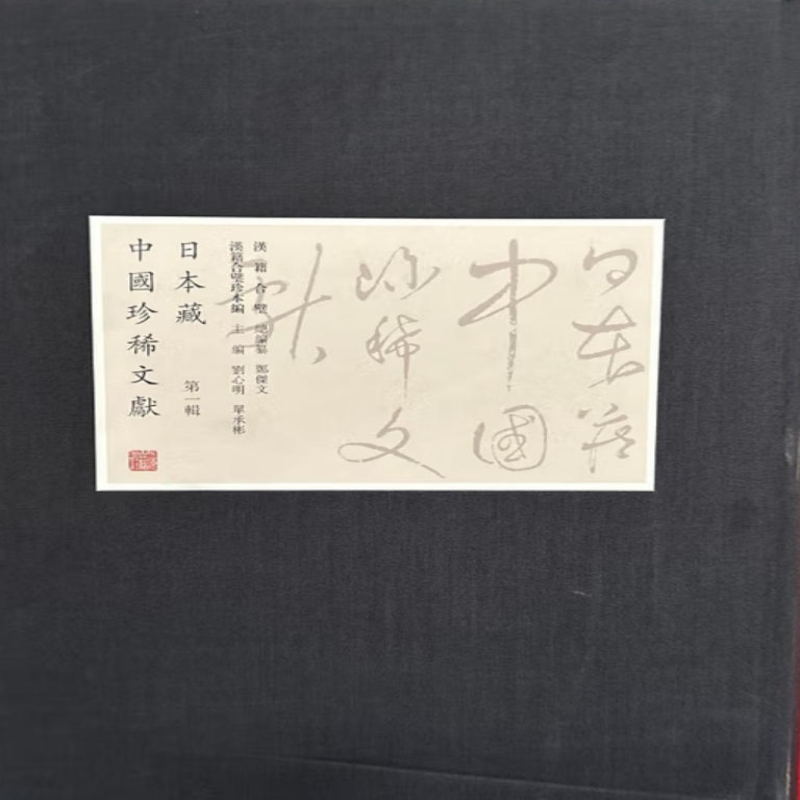 日本藏
中國
珍稀文
獻
漢籍合璧 總編纂 鄭傑文
漢籍合璧珍本編 主編 劉心明 單承彬
日本藏
第一輯
中國珍稀文獻